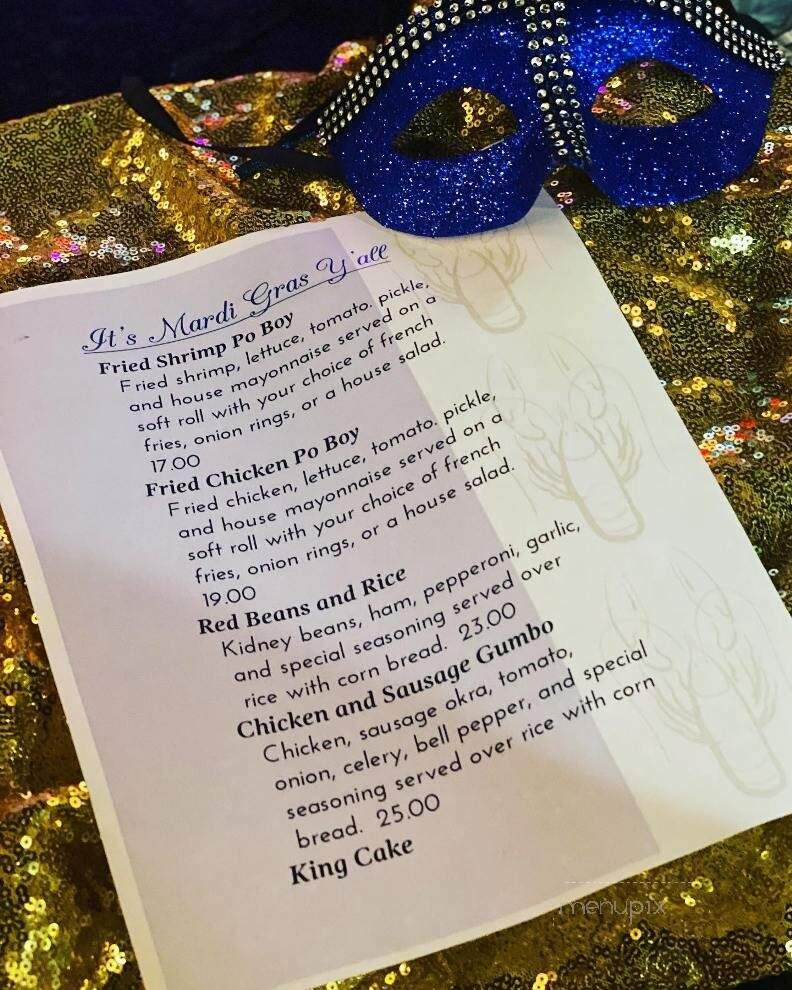 It's Mardi Gras Y'all
Fried Shrimp Po Boy
Fried shrimp, lettuce, tomato. pickle,
and house mayonnaise served on a
soft roll with your choice of french
fries, onion rings, or a house salad.
17.00
Fried Chicken Po Boy
Fried chicken, lettuce, tomato. pickle,
and house mayonnaise served on a
soft roll with your choice of french
fries, onion rings, or a house salad.
19.00
Red Beans and Rice
Kidney beans, ham, pepperoni, garlic,
and special seasoning served over
rice with corn bread. 23.00
Chicken and Sausage Gumbo
Chicken, sausage okra, tomato,
onion, celery, bell pepper, and special
seasoning served over rice with corn
bread. 25.00
King Cake
menupix